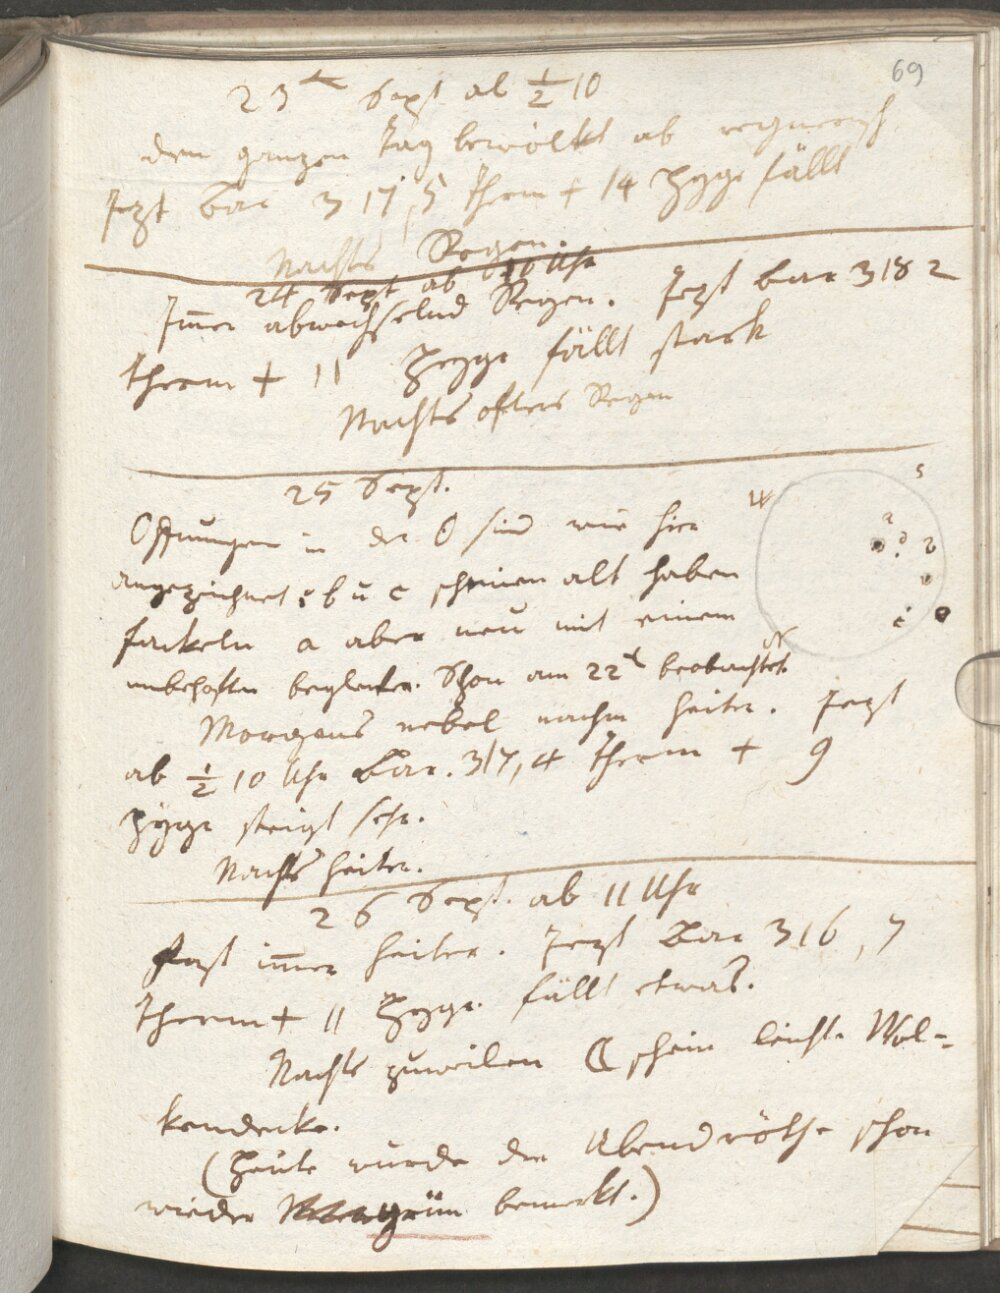 69
23t Sept ab ½ 10
den ganzen Tag bewölkt ab regnerisch
Jezt Bar 317,5 Therm + 14 Hygr fällt
Nachts Regen.
24 Sept ab 10 Uhr
Im̄er abwechselnd Regen. Jezt Bar 318 2
Therm + 11 Hygr fällt stark
Nachts öfters Regen
25 Sept.
Offnungen in der ʘ sind wie hier
angezeichnet b u c scheinen alt haben
fackeln a aber neu mit einem
unbehoften begleiter. Schon am 22t beobachtet
Morgens nebel nachm heiter. Jezt
ab ½ 10 Uhr Bar. 317,4 Therm + 9
Hygr steigt sehr.
Nachts heiter.
26 Sept. ab 11 Uhr
Fast im̄er heiter. Jezt Bar 316,7
Therm + 11 Hygr. fällt etwas.
Nachts zuweilen ☾ schein leichte Wol=
kendecke.
(Heute wurde die Abendröthe schon
wieder grün bemerkt.)